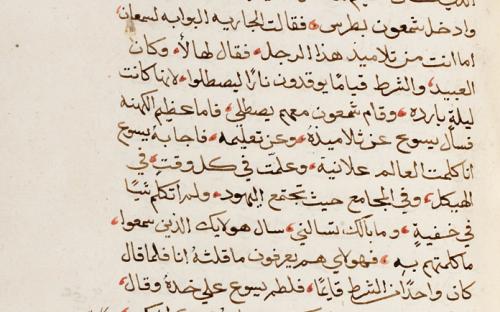 وادخل شمعون بطرس، فقالت الجاريه البوابه لسمعان
اما انت من تلاميذ هذا الرجل، فقال لها لا، وكان
العبيد، والشرط قيامًا يوقدون نارًا ليصطلوا، لانها كانت
ليلة بارده، وقام شمعون معهم يصطلي، فاما عظيم الكهنه
فسال يسوع عن تلاميذه، وعن تعليمه، فاجابه يسوع
انا كلمت العالم علانية، وعلمت في كل وقت، في
الهيكل، وفي المجامع حيث تجتمع اليهود، ولم اتكلم شيًا
في خفية، وما بالك تسالني، سال هولايك الذين سمعوا
ما كلمتهم به، فهولاي هم يعرفون ما قلته انا فلما قال
كان واحدًا من الشرط قايمًا، فلطم يسوع علي خده وقال،